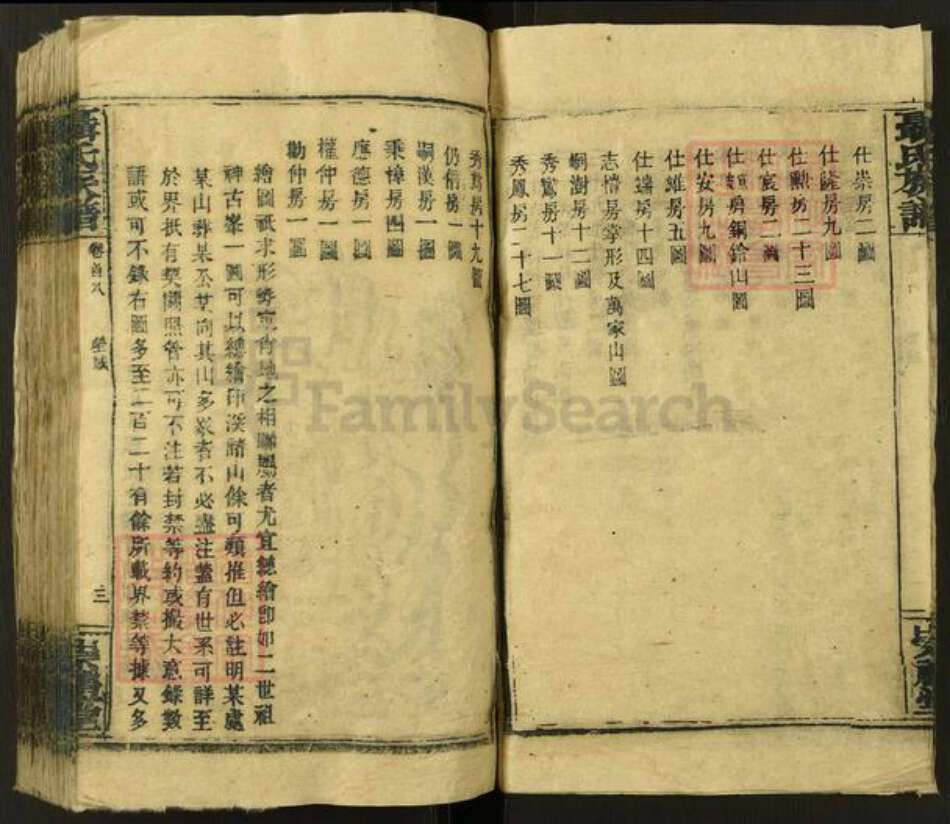 聶氏族譜
仕崇房二圖
仕隆房九圖
仕勲房二十三圖
仕宸房二圖
仕 房銅鈴山圖
仕安房九圖
仕維房五圖
仕遠房十四圖
志愭房掌形及萬家山圖
嗣澍房十二圖
秀鸞房十一圖
秀鳳房二十七圖
秀 房十九圖
仍 房一圖
嗣漢房一圖
秉 房四圖
應德房一圖
權仲房一圖
勛仲房一圖
繪圖祇求形勢 地之相聯屬者尤宜總繪卽如二世祖
神古峯一圖可以總繪 溪諸山餘可類推但必註明某處
某山葬某公某向其山多 者不必盡注葢有世系可詳至
於界祇有契關照管亦可不注若封禁等約或撮大意錄數
語或可不錄右圖多至二百二十有餘所載界禁等據又多
聶氏族譜
卷首八
塋域
三
FamilySearch